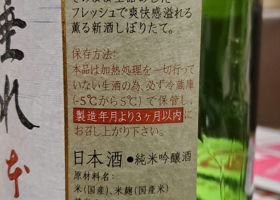 フレッシュで爽快感溢れる
薫る新酒しぼりたて。
保存方法:
本品は加熱処理を一切行って
いない生酒の為、必ず冷蔵庫
(-5℃から5℃)で保管し、
製造年月より3ヶ月以内に
お召し上がり下さい。
日本酒●純米吟醸酒
原材料名:
米(国産)、米麹(国産米)
垂れ
本